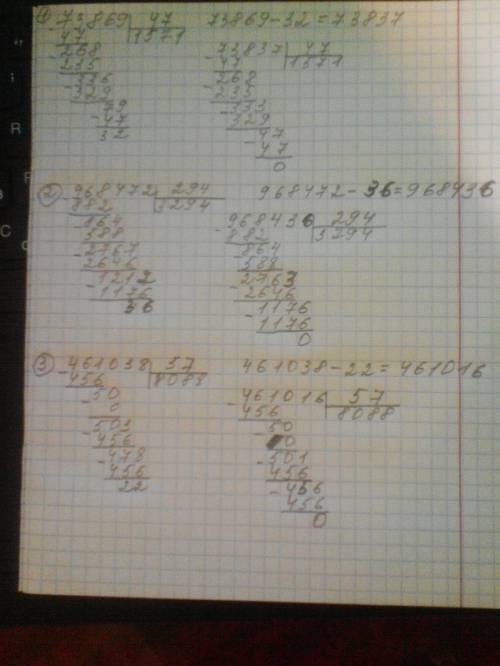 1 73869 | 47
- 47 | 1571
268
- 235
336
- 329
79
- 47
32
73869-32=73837
- 73837 | 47
47 | 1571
- 268
235
- 333
329
- 47
47
0
2 - 968472 | 294
882 | 3294
- 864
588
- 2767
2646
- 1212
1176
36
968472-36=968436
- 968436 | 294
882 | 3294
- 864
588
- 2763
2646
- 1176
1176
0
3 - 461038 | 57
456 | 8088
- 50
0
- 503
456
- 478
456
22
461038-22=461016
- 461016 | 57
456 | 8088
- 50
0
- 501
456
- 456
456
0